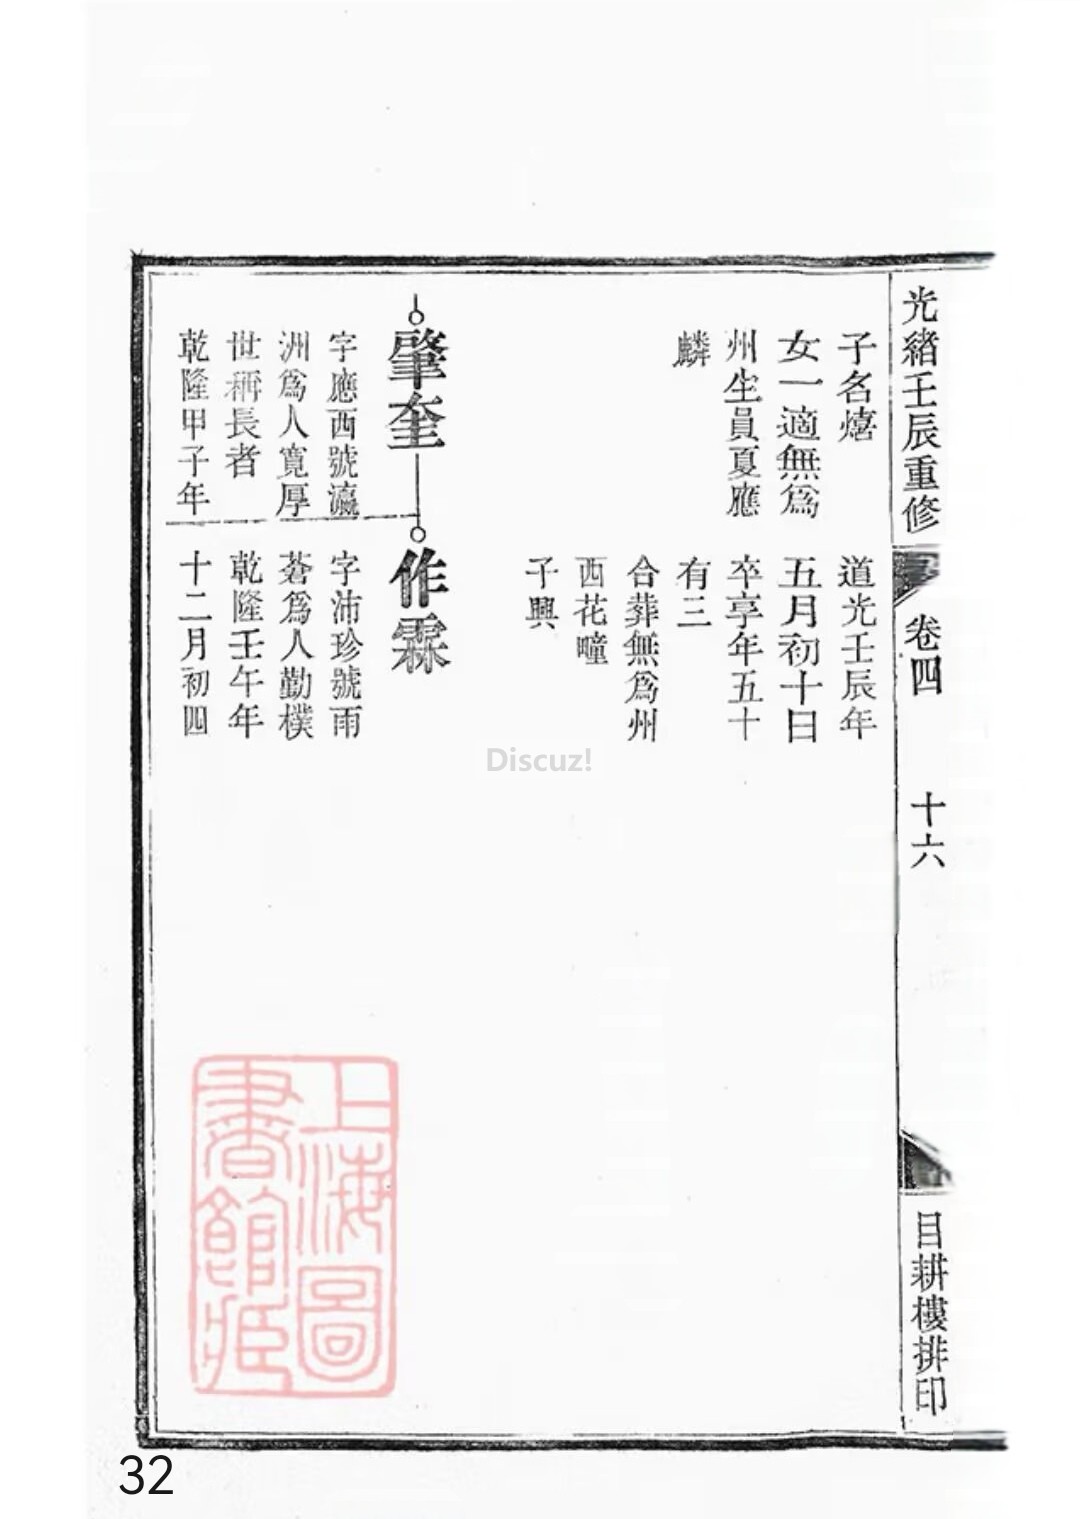 光緒壬辰重修
卷四
十六
目耕樓排印
子名熺
女一適無為
州生員夏應
麟
道光壬辰年
五月初十日
卒享年五十
有三
合葬無為州
西花疃
子興
肇奎
字應西號瀛
洲為人寬厚
世稱長者
乾隆甲子年
作霖
字沛珍號雨
蒼為人勤樸
乾隆壬午年
十二月初四
Discuz!
上海圖
書館藏
32